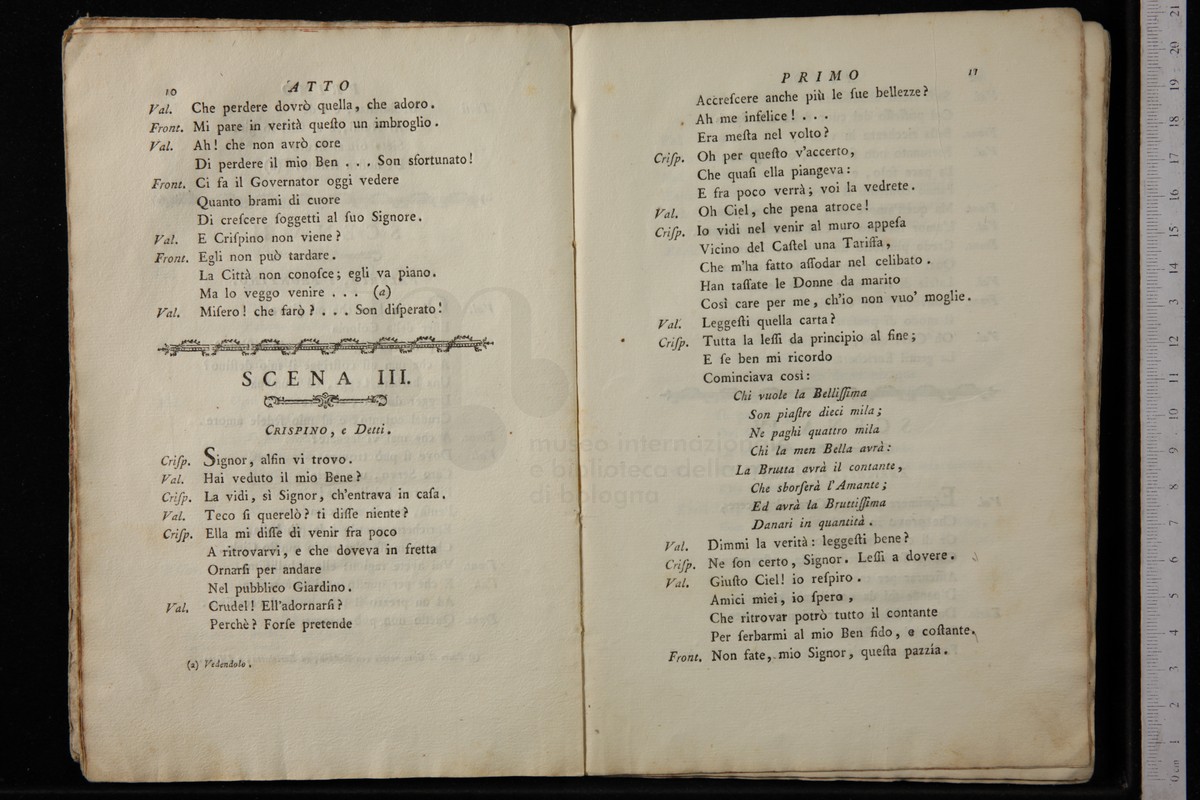 10 ATTO
Val. Che perdere dovrò quella, che adoro.
Front. Mi pare in verità queſto un imbroglio.
Val. Ah! che non avrò core
Di perdere il mio Ben . . . Son sfortunato!
Front. Ci fa il Governator oggi vedere
Quanto brami di cuore
Di creſcere ſoggetti al ſuo Signore.
Val. E Criſpino non viene?
Front. Egli non può tardare.
La Città non conoſce; egli va piano.
Ma lo veggo venire . . . (a)
Val. Miſero! che farò? . . . Son diſperato!
SCENA III.
CRISPINO, e Detti.
Criſp. Signor, alfin vi trovo.
Val. Hai veduto il mio Bene?
Criſp. La vidi, sì Signor, ch'entrava in caſa.
Val. Teco ſi querelò? ti diſſe niente?
Criſp. Ella mi diſſe di venir fra poco
A ritrovarvi, e che doveva in fretta
Ornarſi per andare
Nel pubblico Giardino.
Val. Crudel! Ell'adornarſi?
Perchè? Forſe pretende
(a) Vedendolo.
PRIMO 11
Accreſcere anche più le ſue bellezze?
Ah me infelice! . . .
Era meſta nel volto?
Criſp. Oh per queſto v'accerto,
Che quaſi ella piangeva:
E fra poco verrà; voi la vedrete.
Val. Oh Ciel, che pena atroce!
Criſp. Io vidi nel venir al muro appeſa
Vicino del Caſtel una Tariffa,
Che m'ha fatto aſſodar nel celibato.
Han taſſate le Donne da marito
Così care per me, ch'io non vuo' moglie.
Val. Leggeſti quella carta?
Criſp. Tutta la leſſi da principio al fine;
E ſe ben mi ricordo
Cominciava così:
Chi vuole la Belliſſima
Son piaſtre dieci mila;
Ne paghi quattro mila
Chi la men Bella avrà:
La Brutta avrà il contante,
Che sborſerà l'Amante;
Ed avrà la Bruttiſſima
Danari in quantità.
Val. Dimmi la verità: leggeſti bene?
Criſp. Ne ſon certo, Signor. Leſſi a dovere.
Val. Giuſto Ciel! io reſpiro.
Amici miei, io ſpero,
Che ritrovar potrò tutto il contante
Per ſerbarmi al mio Ben fido, e coſtante.
Front. Non fate, mio Signor, queſta pazzia.
museo internazion
e biblioteca della
di bologna